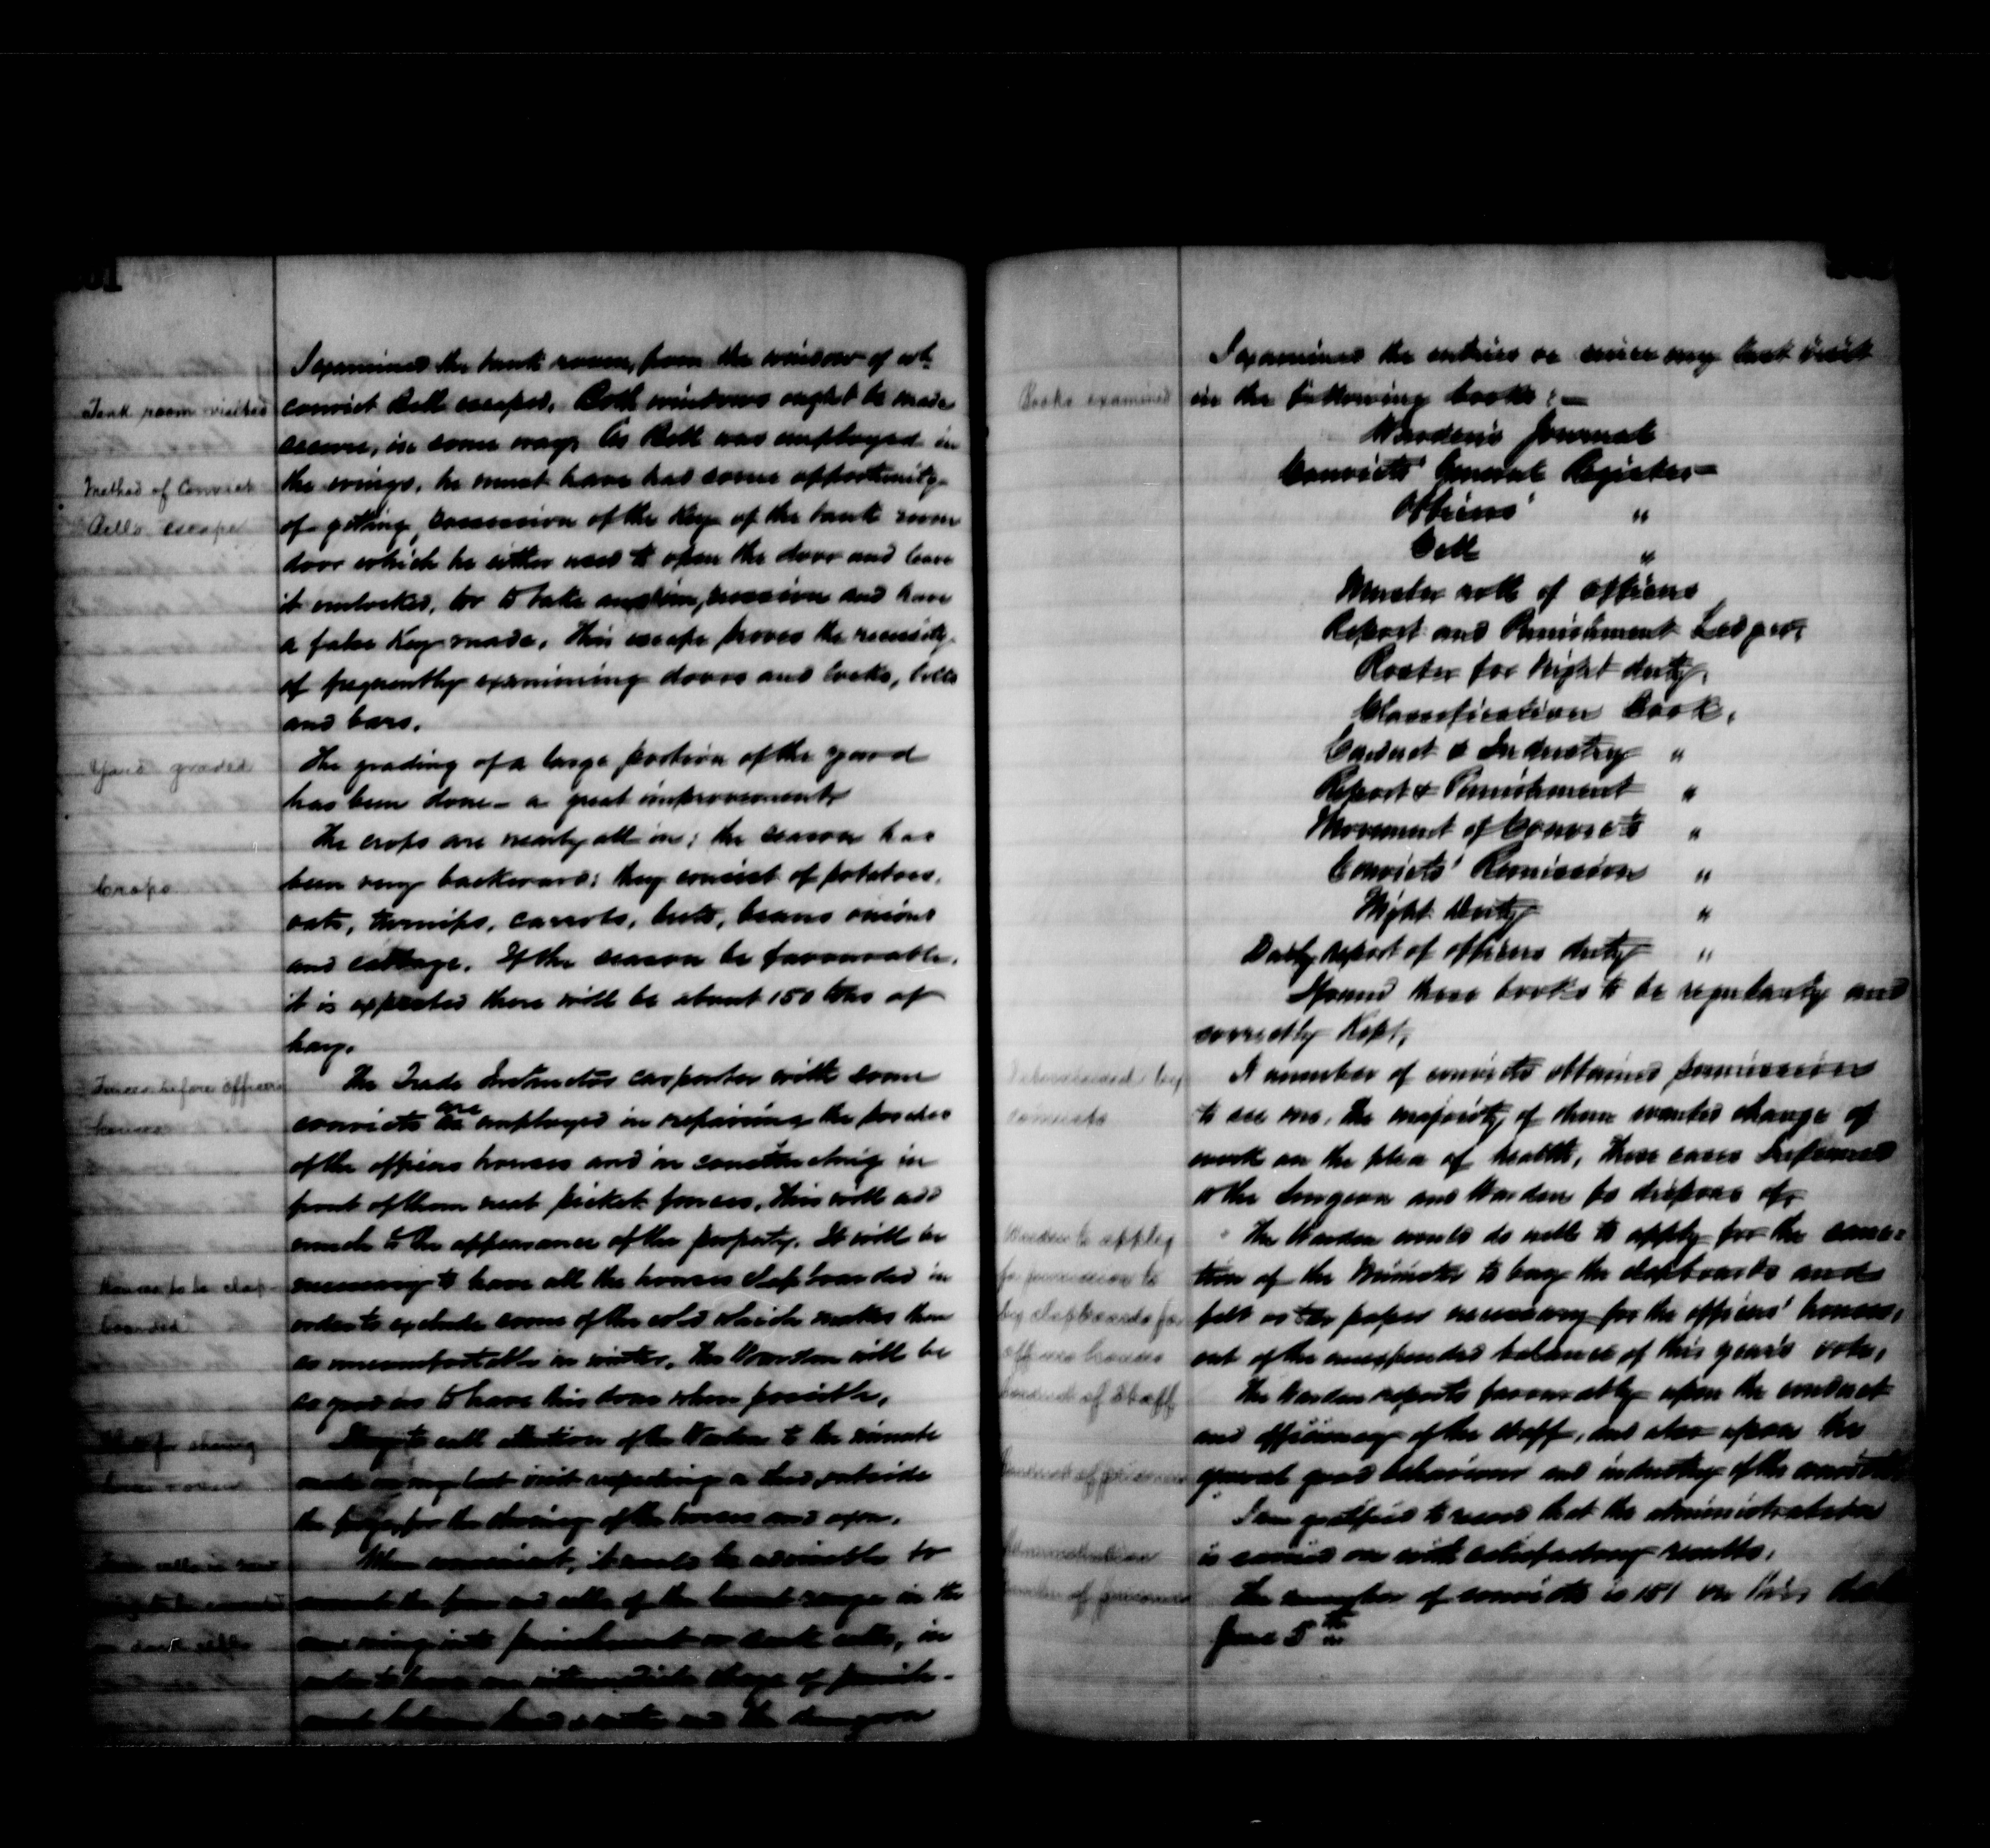 I examined the tank room, from the window of wh
Tank room visited
convict Bell escaped. Both windows ought to be made
secure, in some way. As Bell was employed in
Method of Convict
the wings, he must have had some opportunity
Bell's escape
of getting possession of the key of the tank room
door which he either used to open the door and leave
it unlocked, or to take an impression and have
a false key made. This escape proves the necessity
of frequently examining doors and locks, bolts
and bars.
Yard graded
The grading of a large portion of the yard
has been done – a great improvement.
The crops are nearly all in; the season has
Crops
been very backward; they consist of potatoes,
oats, turnips, carrots, beets, beans onions
and cabbage. If the season be favourable,
it is expected there will be about 150 tons of
hay.
Fences before officers
houses
The Trade Instructor carpenter with some
convicts are employed in repairing the porches
of the officers houses and in constructing in
front of them neat picket fences. This will add
much to the appearance of the property. It will be
Houses to be clap-
boarded
necessary to have all the houses clapboarded in
order to exclude some of the cold which makes them
so uncomfortable in winter. The Warden will be
so good as to have this done when possible.
for shoeing
I beg to call attention of the Warden to the minute
made on my last visit respecting a shed outside
the for the shoeing of the horses and oxen.
When convenient, it would be advisable to
convert the four end cells of the lowest range in the
wing into punishment or dark cells, in
order to have an intermediate stage of punish-
ment between and the dungeon
I examined the entries in since my last visit
Books examined
in the following books: –
Warden's Journal
Convicts' General Register
Officers' "
Cell "
Muster roll of officers
Report and Punishment Ledger,
Roster for Night duty,
Classification Book,
Conduct & Industry "
Report & Punishment "
Movement of Convicts "
Convicts' Remission "
Night Duty "
Daily report of officers duty "
I found these books to be regularly and
correctly kept.
A number of convicts obtained permission
to see me. The majority of them wanted change of
work on the plea of health, these cases I referred
to the Surgeon and Warden to dispose of.
Warden to apply
for permission to
buy clapboards for
officers houses
The Warden would do well to apply for the sanc-
tion of the Minister to buy the clapboards and
felt or tar paper necessary for the officers' houses,
out of the unexpended balance of this year's vote.
Conduct of Staff
The Warden reports favourably upon the conduct
and efficiency of the staff, and also upon the
Conduct of prisoners
general good behaviour and industry of the convicts
I am gratified to record that the administration
Administration
is carried on with satisfactory results.
Number of prisoners
The number of convicts is 151 on this date
June 5th